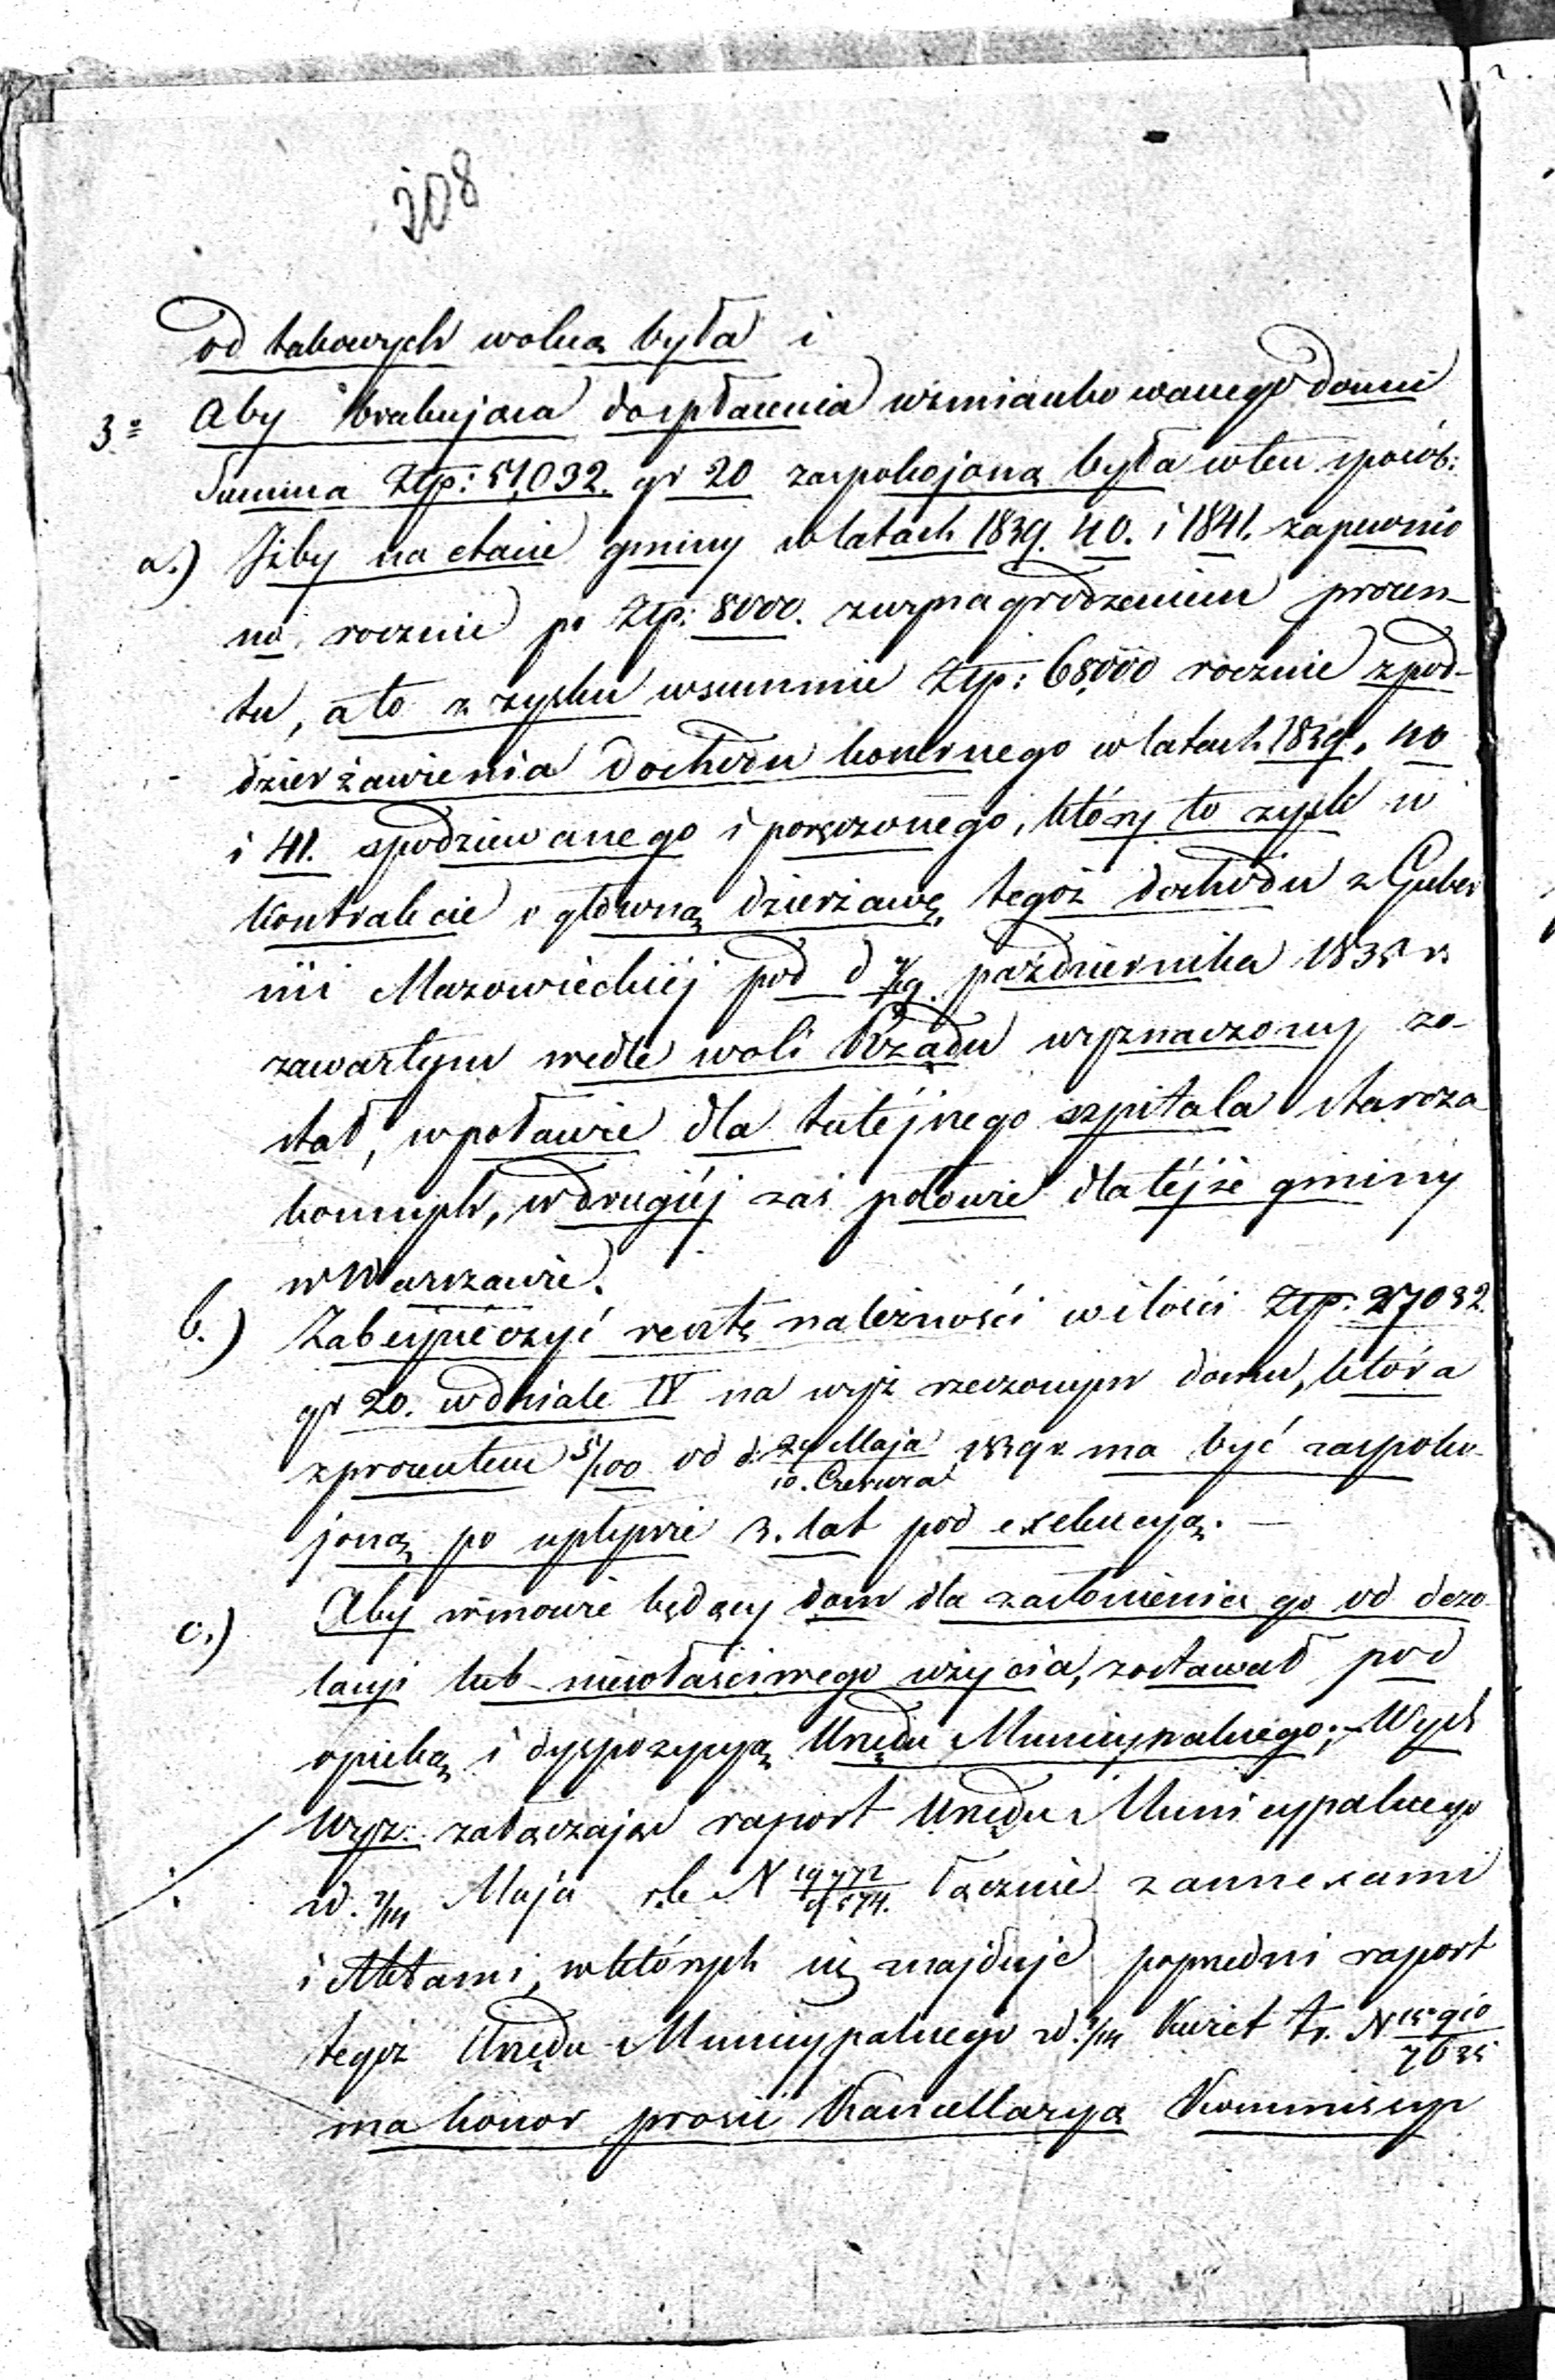 208
od takowych wolną była i
3º Aby brakująca do spłacenia wzmiankowanego domu
Summa Złp: 51,032. gr 20 zaspokojoną była w ten sposób:
a.) Iżby na etacie gminy w latach 1839. 40. i 1841. zapewnio
no rocznie po Złp. 8000. z wynagrodzeniem procen-
tu, a to z zysku w summie Złp: 68,000 rocznie z pod-
dzierżawienia dochodu konsumnego w latach 1839, 40
i 41. spodziewanego i poręczonego, który to zysk w
Kontrakcie o główną dzierżawę tegoż dochodu z Guber
nii Mazowieckiéj pod d 7/19 października 1838 r.
zawartym wedle woli Rządu wyznaczony zo-
stał, w połowie dla tutéjszego szpitala staroza
konnych, w drugiéj zaś połowie dla téjże gminy
w Warszawie.
b.) Zabezpieczyć resztę należności w ilości Złp. 27032.
gr 20. w dziale IV na wyż rzeczonym domu, która
z procentem 5/100 od d. 29 Maja/10. Czerwca 1839 r. ma być zaspoko-
joną po upływie 3. lat pod exekucyą. —
c.) Aby w mowie będący dom dla zasłonienia go od dezo
lacyi lub niewłaściwego użycia, zostawał pod
opieką i dyspozycyą Urzędu Municypalnego; – Wych
Wyz: załączając raport Urzędu Municypalnego
z d. 2/14 Maja rb N 19772/574. łącznie z annexami
i Aktami, w których się znajduje poprzedni raport
tegoż Urzędu Municypalnego z d. 2/14 Kwiet t.r. N 15910/7635
ma honor prosić Kancellarya Kommissyi